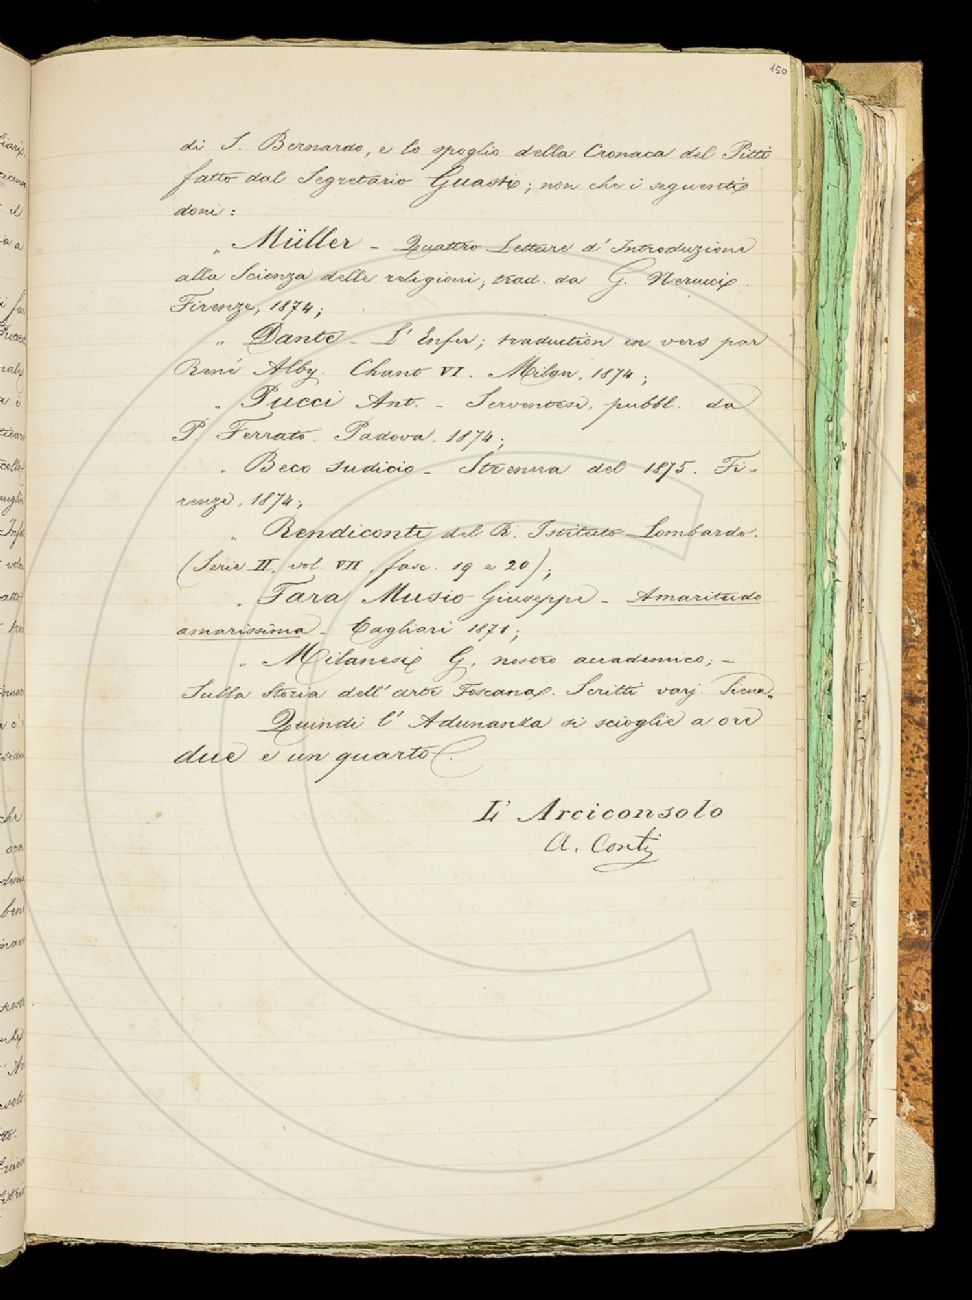 150
di S. Bernardo, e lo spoglio della Cronaca del Pitti
fatto dal Segretario Guasti; non che i seguenti
doni:
„ Müller – Quattro Letture d'Introduzione
alla Scienza delle religioni; trad. da G. Nerucci.
Firenze, 1874;
„ Dante – L'Enfer; traduction en vers par
René Alby. Chant VI. Milan, 1874;
„ Pucci Ant. – Serventese, pubbl. da
P. Ferrato. Padova. 1874;
„ Beco Sudicio – Strenna del 1875. Fi-
renze, 1874;
„ Rendiconti del R. Istituto Lombardo.
(Serie II, vol. VII, fasc. 19 e 20);
„ Fara Musio Giuseppe – Amaritudo
amarissima – Cagliari 1871;
„ Milanesi G. nostro accademico; –
Sulla Storia dell'arte Toscana. Scritti varj. Siena.
Quindi l'Adunanza si scioglie a ore
due e un quarto.
L'Arciconsolo
A. Conti